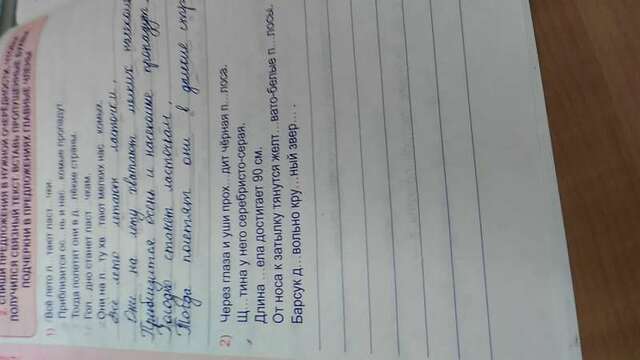 2. СПИШИ ПРЕДЛОЖЕНИЯ В НУЖНОЙ ОЧЕРЕДНОСТИ, ЧТОБЫ
ПОЛУЧИЛСЯ СВЯЗНЫЙ ТЕКСТ. ВСТАВЬ ПРОПУЩЕННЫЕ БУКВЫ.
ПОДЧЕРКНИ В ПРЕДЛОЖЕНИЯХ ГЛАВНЫЕ ЧЛЕНЫ
1) Всё лето л...тают ласт...чки.
Приблизится ос...нь и нас...комые пропадут.
Тогда полетят они в д...лёкие страны.
Гол...дно станет ласт...чкам.
Они на л...ту хв...тают мелких нас...комых.
Всё лето летают ласточки.
Они на лету хватают мелких насеком
Приблизится осень и насекомые пропадут.
Голодно станет ласточкам.
Тогда полетят они в далёкие стра
2) Через глаза и уши прох...дит чёрная п...лоса.
Щ...тина у него серебристо-серая.
Длина ...ела достигает 90 см.
От носа к затылку тянутся желт...вато-белые п...лосы.
Барсук д...вольно кру...ный звер... .